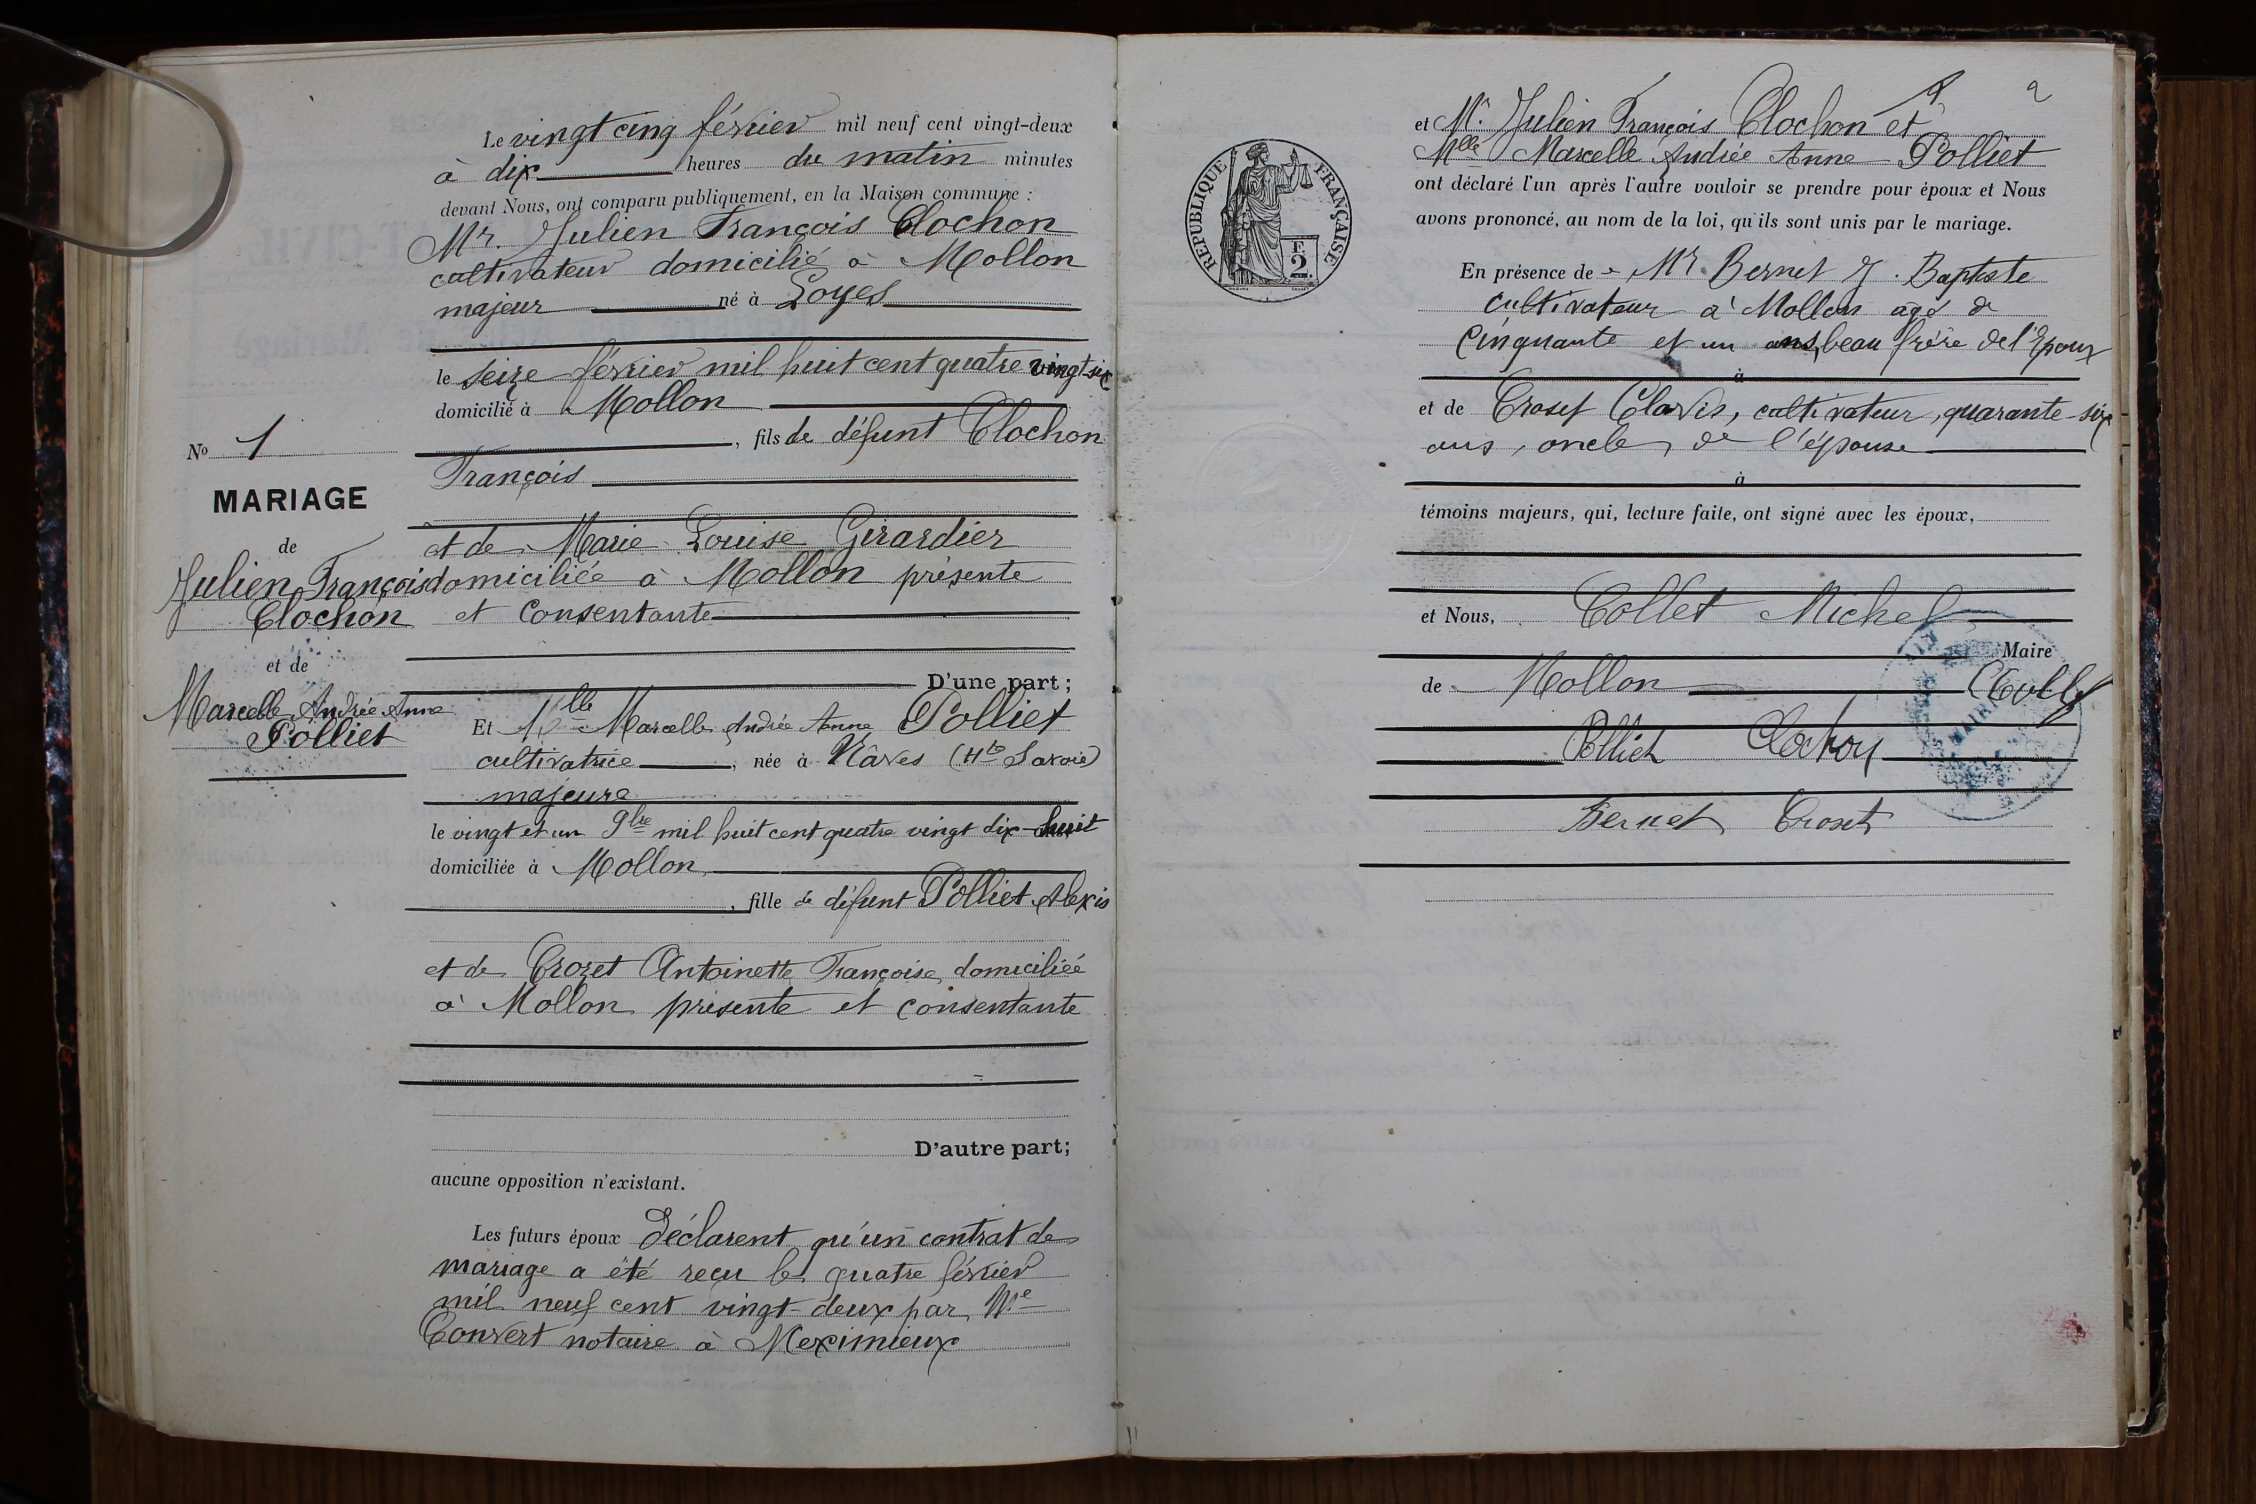 Le vingt cinq février mil neuf cent vingt-deux
à dix heures du matin minutes
devant Nous, ont comparu publiquement, en la Maison commune :
Mr. Julien François Clochon
cultivateur domicilié à Mollon
majeur né à Loyes
le seize février mil huit cent quatre vingt-six
domicilié à Mollon
, fils de défunt Clochon
François
et de Marie Louise Girardier
domiciliée à Mollon présente
et consentante
D'une part ;
Et Mlle Marcelle Andrée Anne Polliet
cultivatrice, née à Nâves (Hte Savoie)
majeure
le vingt et un 9bre mil huit cent quatre vingt dix-huit
domiciliée à Mollon
, fille de défunt Polliet Alexis
et de Crozet Antoinette Françoise domiciliée
à Mollon présente et consentante
D'autre part ;
aucune opposition n'existant.
Les futurs époux déclarent qu'un contrat de
mariage a été reçu le quatre février
mil neuf cent vingt-deux par Me
Convert notaire à Meximieux
No 1
MARIAGE
de
Julien François
Clochon
et de
Marcelle Andrée Anne
Polliet
2
RÉPUBLIQUE FRANÇAISE
F.
2
et Mr. Julien François Clochon et
Mlle Marcelle Andrée Anne Polliet
ont déclaré l'un après l'autre vouloir se prendre pour époux et Nous
avons prononcé, au nom de la loi, qu'ils sont unis par le mariage.
En présence de Mr. Bernet J. Baptiste
cultivateur à Mollon âgé de
Cinquante et un ans, beau frère de l'Epoux
à
et de Croset Clovis, cultivateur, quarante-six
ans, oncle de l'épouse
à
témoins majeurs, qui, lecture faite, ont signé avec les époux,
et Nous, Collet Michel
Maire
de Mollon Collet
Polliet Clochon
Bernet Croset